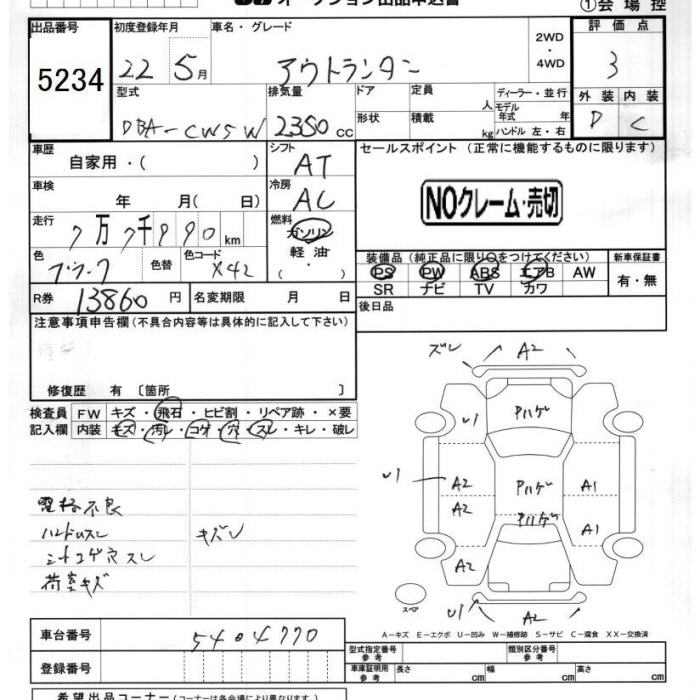 オークション出品申込書
①会場控
出品番号 初度登録年月 車名・グレード 2WD・4WD 評価点
5234 22 5月 アウトランダー 3
型式 排気量 ドア 定員 人 ディーラー・並行 外装 内装
DBA-CW5W 2350cc 形状 積載 kg モデル年式 年 ハンドル 左・右 D C
車歴 シフト セールスポイント (正常に機能するものに限ります)
自家用・( ) AT
車検 冷房
年 月( 日) AC NOクレーム・売切
走行 燃料
7万7千990km ガソリン
軽油
・( )
色 色替 色コード 装備品(純正品に限り○をつけてください) 新車保証書
ブラック X42 PS PW ABS エアB AW 有・無
SR ナビ TV カワ
R券 13860円 名変期限 月 日 後日品
注意事項申告欄(不具合内容等は具体的に記入して下さい)
修復歴 有 〔箇所 〕
検査員 FW キズ・飛石・ヒビ割・リペア跡・×要
記入欄 内装 キズ・汚レ・コゲ・穴・スレ・キレ・破レ
ズレ A2
U1 Pハゲ
U1 A2 Pハゲ A1
A2 Pハゲ A1
A2
U1 A2
電格不良
ハンドルスレ キズレ
シートコゲ穴スレ
荷室キズ
スペア
A-キズ E-エクボ U-凹み W-補修跡 S-サビ C-腐食 XX-交換済
車台番号 5404770
登録番号
型式指定番号 参考 類別区分番号 参考
車庫証明用 参考 長さ cm 幅 cm 高さ cm
希望出品コーナー(コーナーは各会場により異なります)